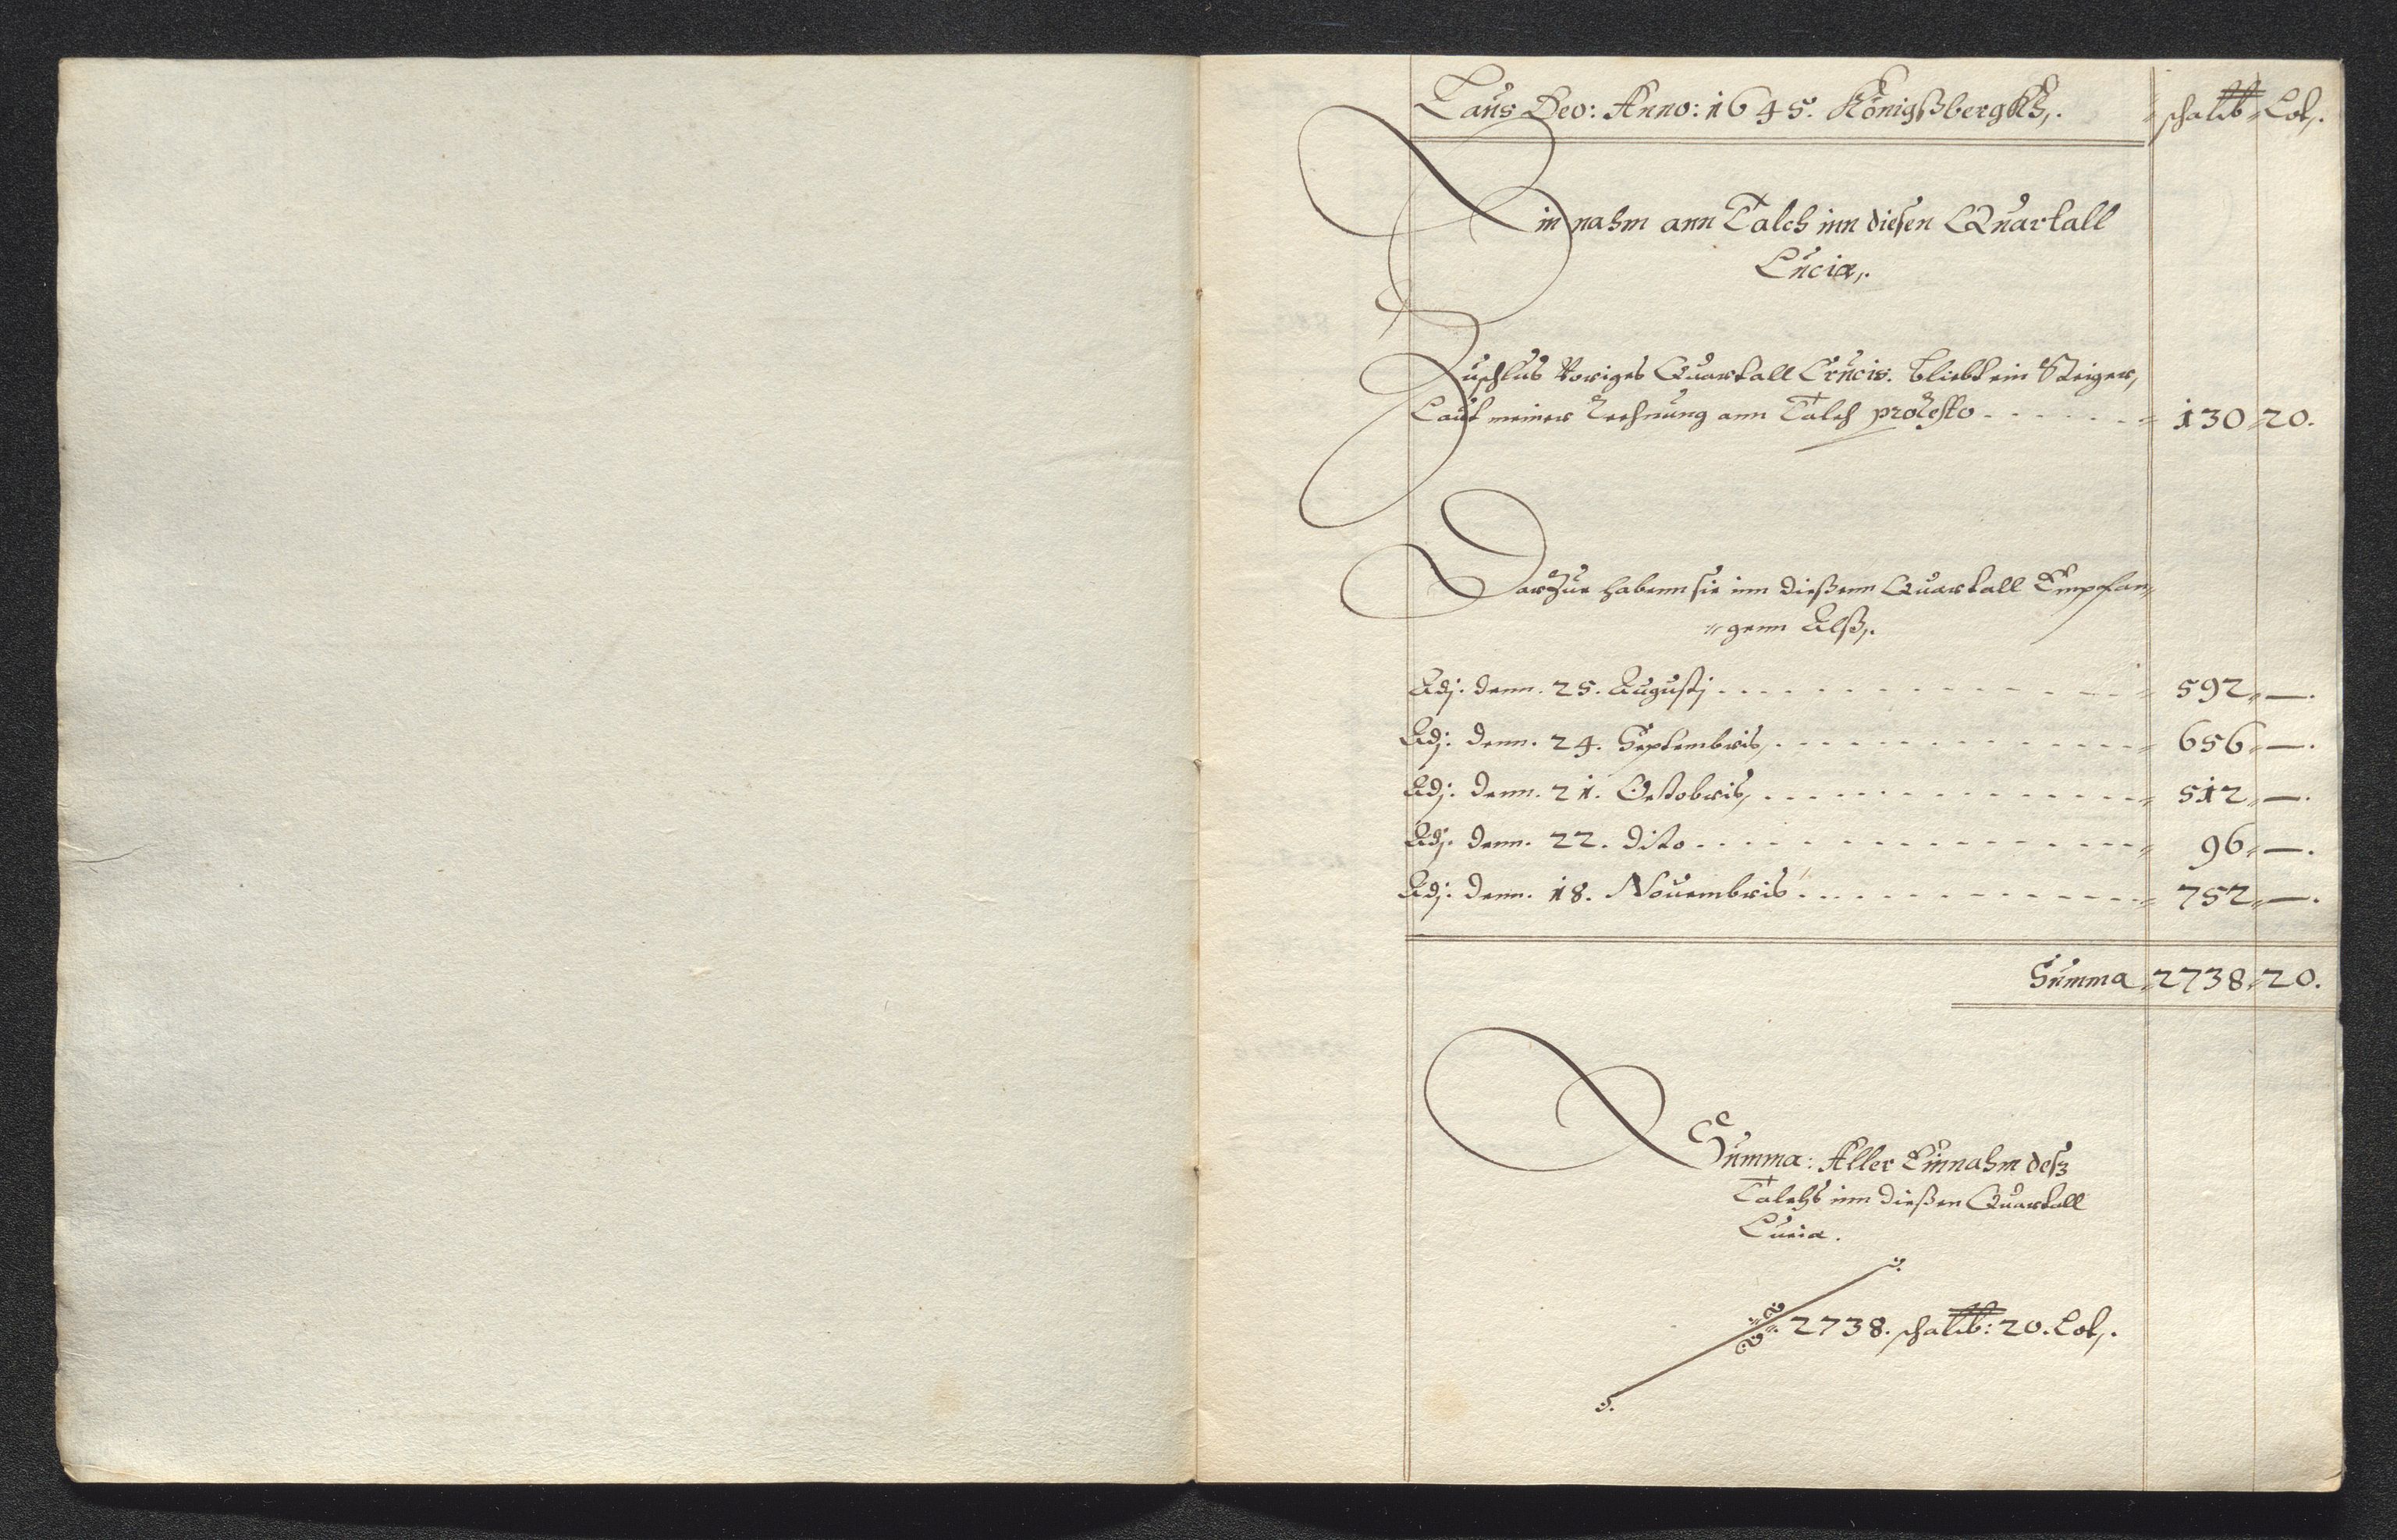 Laus Deo: Anno: 1645. Königßbergkh,. schal℔ Lot,.
Einnahm ann Talch inn diesen Quartall
Luciæ,.
Zuschlus Voriges Quartall Crucis. bliebt ein Steiger,
Laut meiner Rechnung ann Talch pro Resto 130 20.
Darzue habenn sie inn dießenn Quartall Empfan„
„genn Alß,.
Adj. denn. 25. Augustj 592 —.
Adj. denn. 24. Septembris, 656 —.
Adj. denn. 21. Octobris, 512 —.
Adj. denn. 22. Dito 96 —.
Adj. denn. 18. Nouembris 752 —.
Summa 2738 20.
Summa: Aller Einnahm deß
Talchs inn dießen Quartall
Luciæ.
2738. schal℔: 20. Lot,.